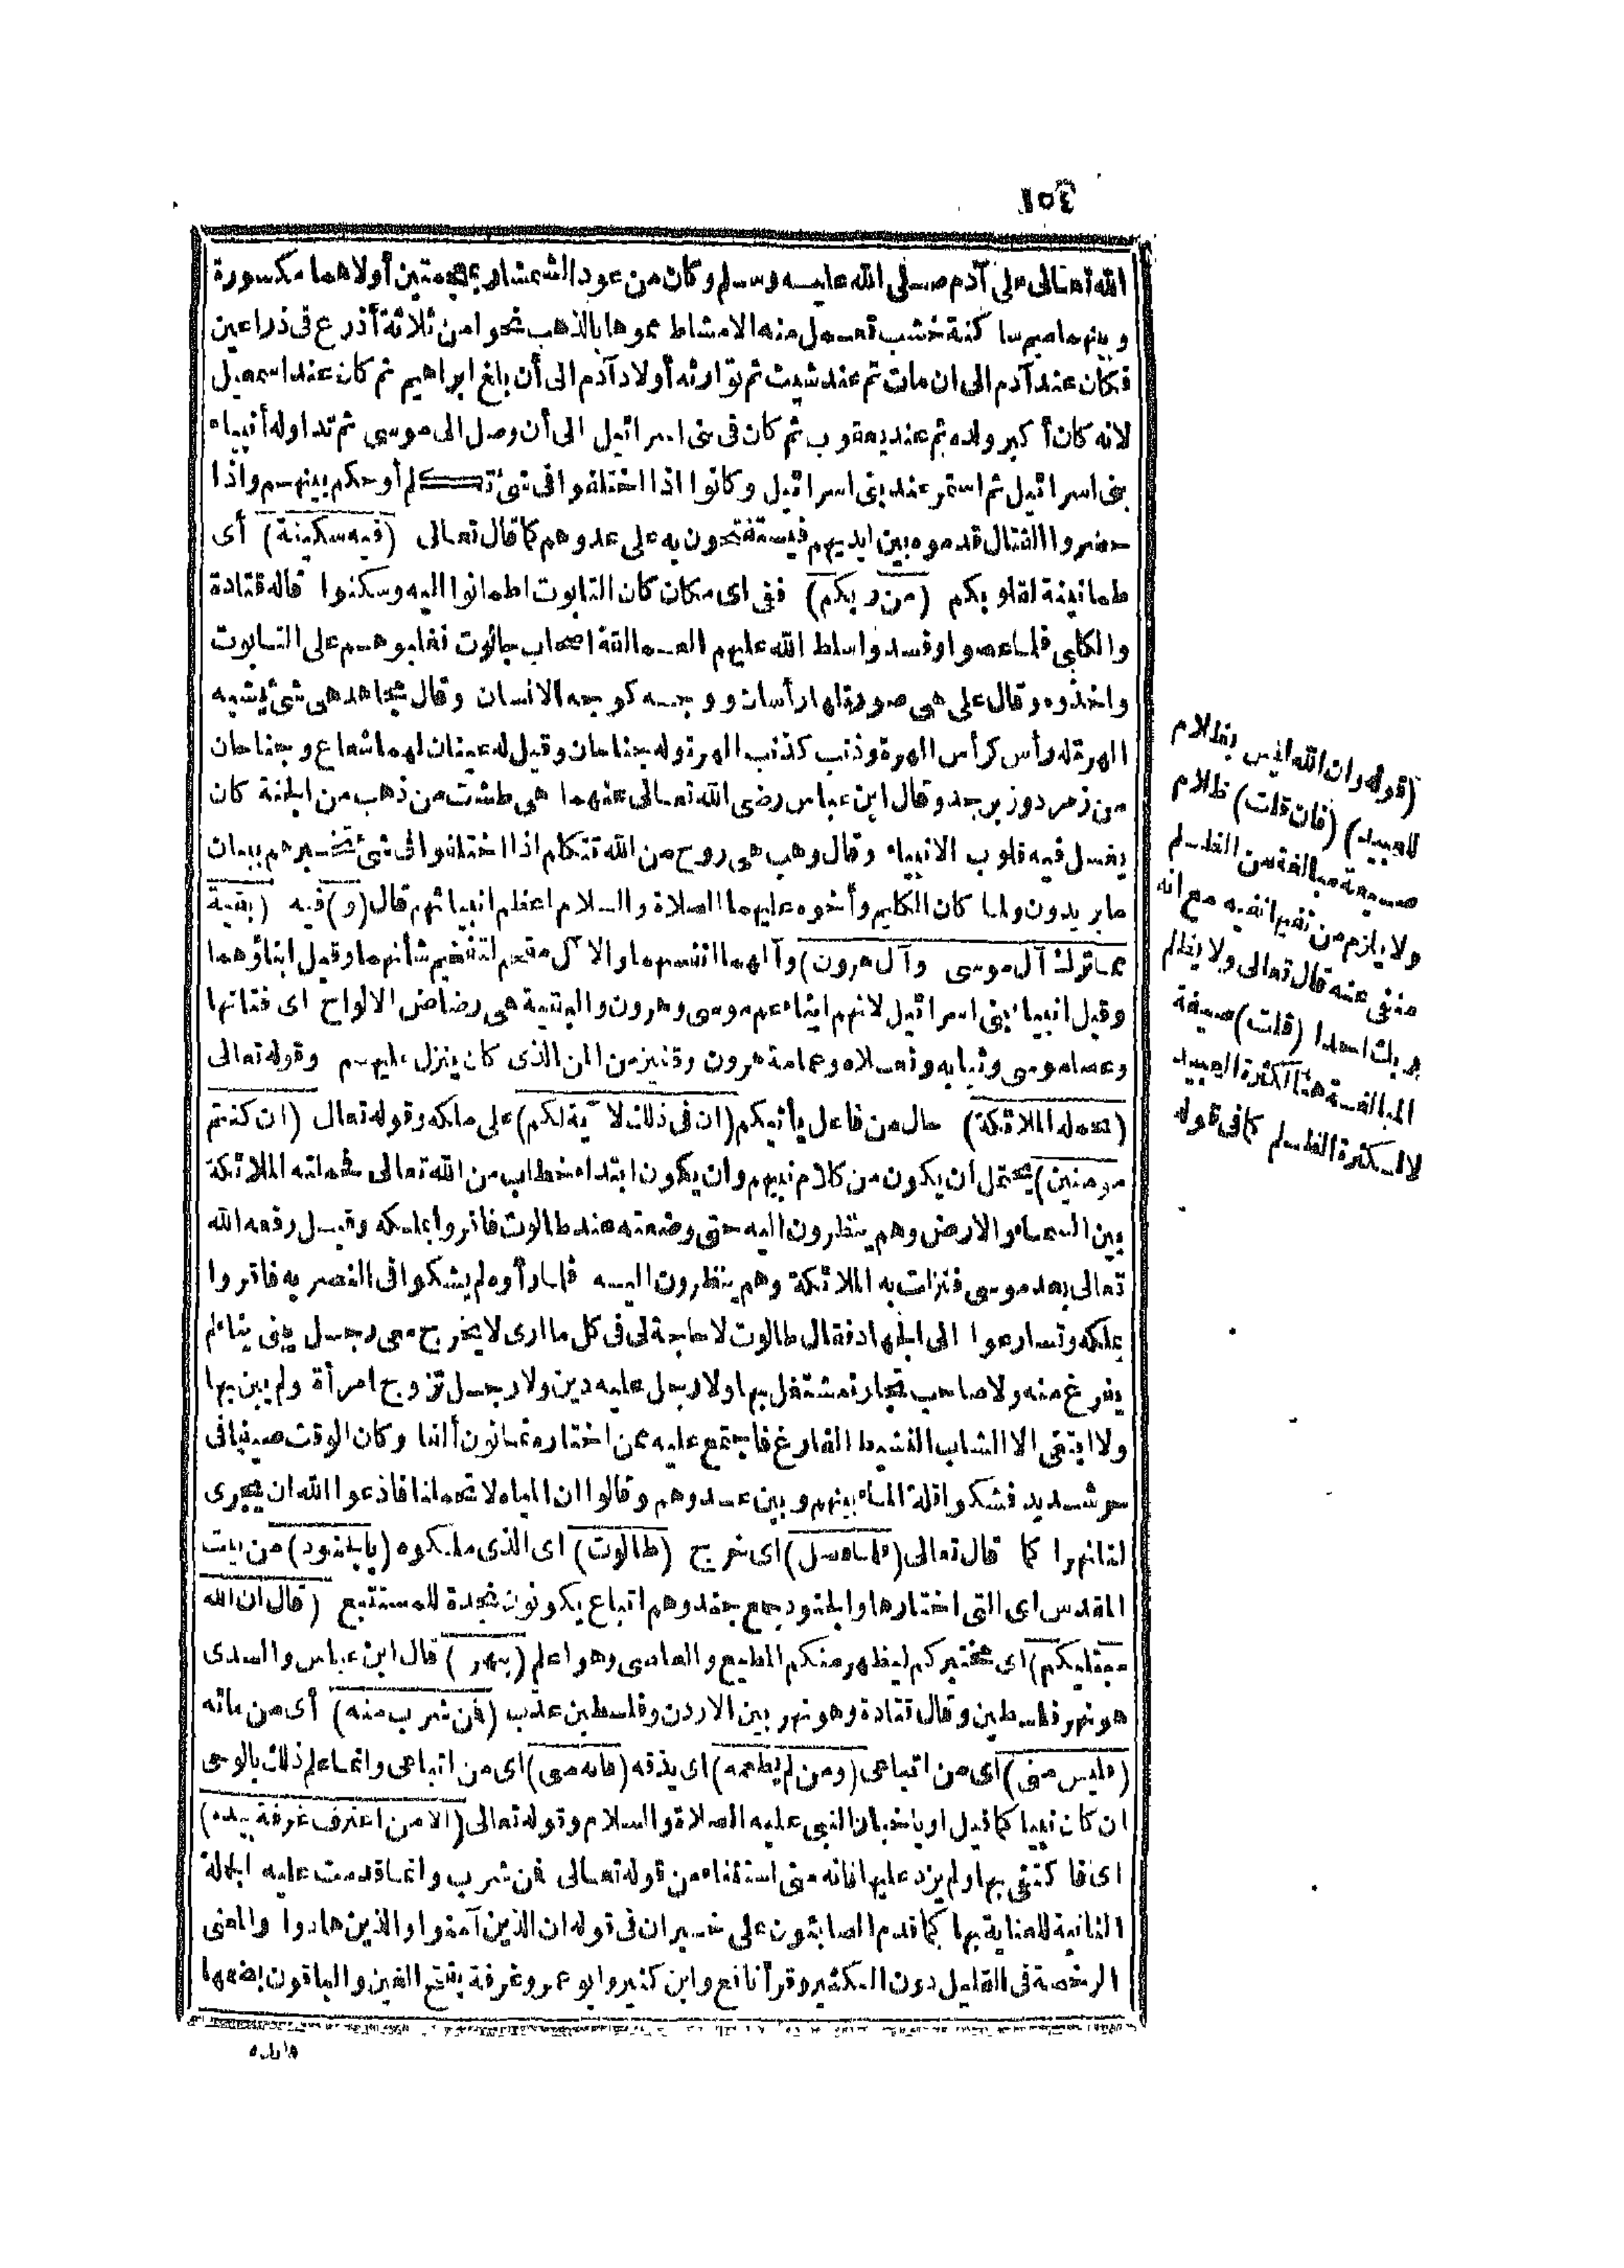 الله تعالى على آدم صلى الله عليه وسلم وكان من عود الشمشار بمعجمتين أولاهما مكسورة
وبينهما ميم ساكنة خشب تعمل منه الامشاط مموها بالذهب نحوا من ثلاثة أذرع فى ذراعين
فكان عند آدم الى ان مات ثم عند شيث ثم توارثه أولاد آدم الى أن بلغ ابراهيم ثم كان عند اسمعيل
لانه كان أكبر ولده ثم عند يعقوب ثم كان فى بنى اسرائيل الى أن وصل الى موسى ثم تداوله أنبياء
بنى اسرائيل ثم استمر عند بنى اسرائيل وكانوا اذا اختلفوا فى شئ تكلم أو حكم بينهم واذا
حضروا القتال قدموه بين ايديهم فيستفتحون به على عدوهم كما قال تعالى (فيه سكينة) أى
طمانينة لقلوبكم (من ربكم) ففى اى مكان كان التابوت اطمانوا اليه وسكنوا قاله قتادة
والكلبى فلما عصوا وفسدوا سلط الله عليهم العمالقة اصحاب جالوت فغلبوهم على التابوت
واخذوه وقال على هى صورة لها رأسان ووجه كوجه الانسان وقال مجاهد هى شئ يشبه
الهرة له رأس كرأس الهرة وذنب كذنب الهرة وله جناحان وقيل له عينان لهما شعاع وجناحان
من زمرد وزبرجد وقال ابن عباس رضى الله تعالى عنهما هى طشت من ذهب من الجنة كان
يغسل فيه قلوب الانبياء وقال وهب هى روح من الله تتكلم اذا اختلفوا فى شئ تخبرهم ببيان
ما يريدون ولما كان الكليم وأخوه عليهما الصلاة والسلام اعظم انبيائهم قال (و) فيه (بقية
مما ترك آل موسى وآل هرون) وآلهما انفسهما والآل مقحم لتفخيم شأنهما وقيل ابناؤهما
وقيل انبياء بنى اسرائيل لانهم ابناء عم موسى وهرون والبقية هى رضاض الالواح اى فتاتها
وعصا موسى وثيابه ونعلاه وعمامة هرون وقفيز من المن الذى كان ينزل عليهم وقوله تعالى
(تحمله الملائكة) حال من فاعل يأتيكم (ان فى ذلك لآية لكم) على ملكه وقوله تعالى (ان كنتم
مومنين) يحتمل أن يكون من كلام نبيهم وان يكون ابتداء خطاب من الله تعالى فحملته الملائكة
بين السماء والارض وهم ينظرون اليه حتى وضعته عند طالوت فاقروا بملكه وقيل رفعه الله
تعالى بعد موسى فنزلت به الملائكة وهم ينظرون اليه فلما رأوه لم يشكوا فى النصر به فاقروا
بملكه وتسارعوا الى الجهاد فقال طالوت لا حاجة لى فى كل ما ارى لا يخرج معى رجل بنى بناء لم
يفرغ منه ولا صاحب تجارة مشتغل بها ولا رجل عليه دين ولا رجل تزوج امرأة ولم يبن بها
ولا ابتغى الا الشاب النشيط الفارغ فاجتمع عليه ممن اختاره ثمانون ألفا وكان الوقت صيفا فى
حر شديد فشكوا قلة الماء بينهم وبين عدوهم وقالوا ان المياه لا تحملنا فادعوا الله ان يجرى
لنا نهرا كما قال تعالى (فلما فصل) اى خرج (طالوت) اى الذى ملكوه (بالجنود) من بيت
المقدس اى التى اختارها والجنود جمع جند وهم اتباع يكونون نجدة للمستتبع (قال ان الله
مبتليكم) اى مختبركم ليظهر منكم المطيع والعاصى وهو اعلم (بنهر) قال ابن عباس والسدى
هو نهر فلسطين وقال قتادة وهو نهر بين الاردن وفلسطين عذب (فمن شرب منه) أى من مائه
(فليس منى) اى من اتباعى (ومن لم يطعمه) اى يذقه (فانه منى) اى من اتباعى وانما علم ذلك بالوحى
ان كان نبيا كما قيل او باخبار النبى عليه الصلاة والسلام وقوله تعالى (الا من اغترف غرفة بيده)
اى فاكتفى بها ولم يزد عليها فانه منى استثناء من قوله تعالى فمن شرب وانما قدمت عليه الجملة
الثانية للعناية بها كما قدم الصابئون على خبر ان فى قوله ان الذين آمنوا والذين هادوا والمعنى
الرخصة فى القليل دون الكثير وقرأ نافع وابن كثير وابو عمرو غرفة بفتح الغين والباقون بضمها
(قوله وان الله ليس بظلام
للعبيد) (فان قلت) ظلام
صيغة مبالغة من الظلم
ولا يلزم من نفيها نفيه مع انه
منفى عنه قال تعالى ولا يظلم
ربك احدا (قلت) صيغة
المبالغة هنا لكثرة العبيد
لا لكثرة الظلم كما فى قوله